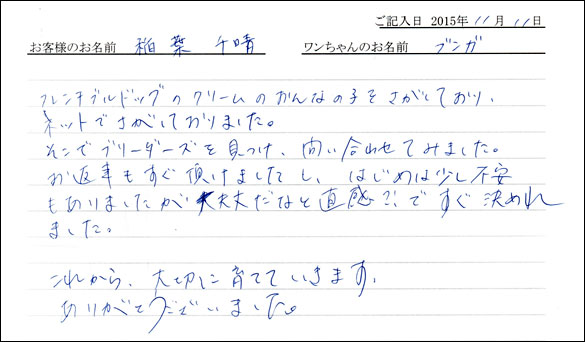 ご記入日 2015年 11月 11日
お客様のお名前 稲葉 千晴 ワンちゃんのお名前 ブンガ
フレンチブルドッグのクリームのおんなの子をさがしており、
ネットでさがしておりました。
そこでブリーダーズを見つけ、問い合わせてみました。
お返事もすぐ頂けましたし、はじめは少し不安
もありましたが大丈夫だなと直感?!ですぐ決めれ
ました。
これから、大切に育てていきます。
ありがとうございました。